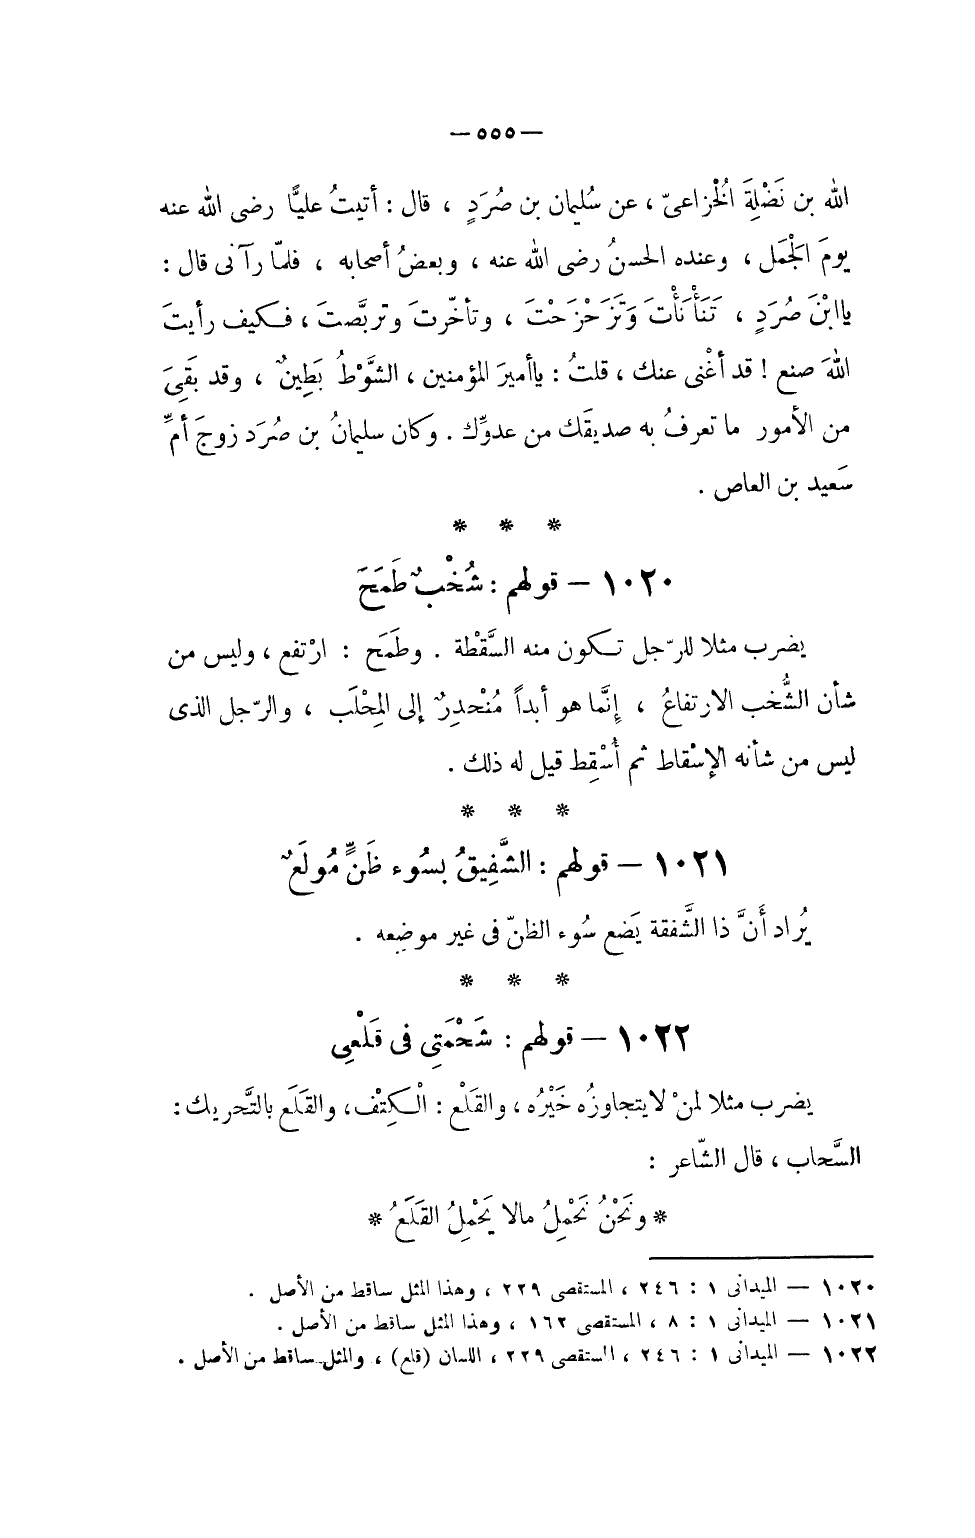 — ٥٥٥ —
الله بن نَضْلِةَ الخُزاعىّ ، عن سُليمان بن صُرَدٍ ، قال : أتيتُ عليًّا رضى الله عنه
يومَ الجَمْل ، وعنده الحسنُ رضى الله عنه ، وبعضُ أصحابه ، فلمّا رآنى قال :
ياابْنَ صُرَدٍ ، تَنَأْنَأْتَ وَتَزَحْزَحْتَ ، وتأخّرتَ وتربَّصتَ ، فكيف رأيتَ
اللهَ صنع ! قد أغْنى عنك ، قلتُ : ياأميرَ المؤمنين ، الشَّوْطُ بَطِينٌ ، وقد بَقِىَ
من الأمور ما تعرفُ به صديقَك من عدوِّك . وكان سليمانُ بن صُرَد زوجَ أمِّ
سَعيد بن العاص .
* * *
١٠٢٠ — قولهم : شُخْبٌ طَمَحَ
يضرب مثلا للرّجل تكون منه السَّقْطة . وطَمَح : ارْتفع ، وليس من
شأن الشُّخب الارتفاعُ ، إنَّما هو أبداً مُنْحدِرٌ إلى المِحْلَب ، والرّجل الذى
ليس من شأنه الإسْقاط ثم أُسْقِط قيل له ذلك .
* * *
١٠٢١ — قولهم : الشَّفِيقُ بسُوء ظَنٍّ مُولَعٌ
يُراد أَنَّ ذا الشَّفقة يَضع سُوء الظنّ فى غير موضِعه .
* * *
١٠٢٢ — قولهم : شَحْمَتِي فى قَلْعِى
يضرب مثلا لمنْ لايتجاوزُه خَيْرُه ، والقَلْع : الْكِتْف، والقَلَع بالتَّحريك :
السَّحاب ، قال الشّاعر :
* ونَحْنُ نَحْمِلُ مالا يَحْمِلُ القَلَعُ *
١٠٢٠ — الميدانى ١ : ٢٤٦ ، المستقصى ٢٢٩ ، وهذا المثل ساقط من الأصل .
١٠٢١ — الميدانى ١ : ٨ ، المستقصى ١٦٢ ، وهذا المثل ساقط من الأصل .
١٠٢٢ — الميدانى ١ : ٢٤٦ ، المستقصى ٢٢٩ ، اللسان (قلع) ، والمثل ساقط من الأصل .